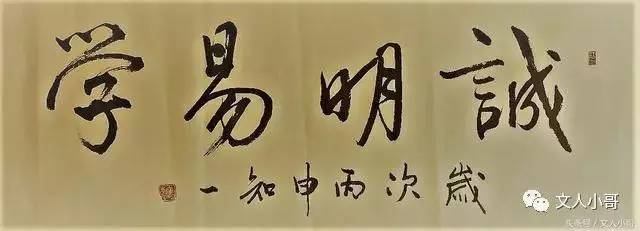 誠明易学
歲次丙申知一
文人小哥
头条号／文人小哥